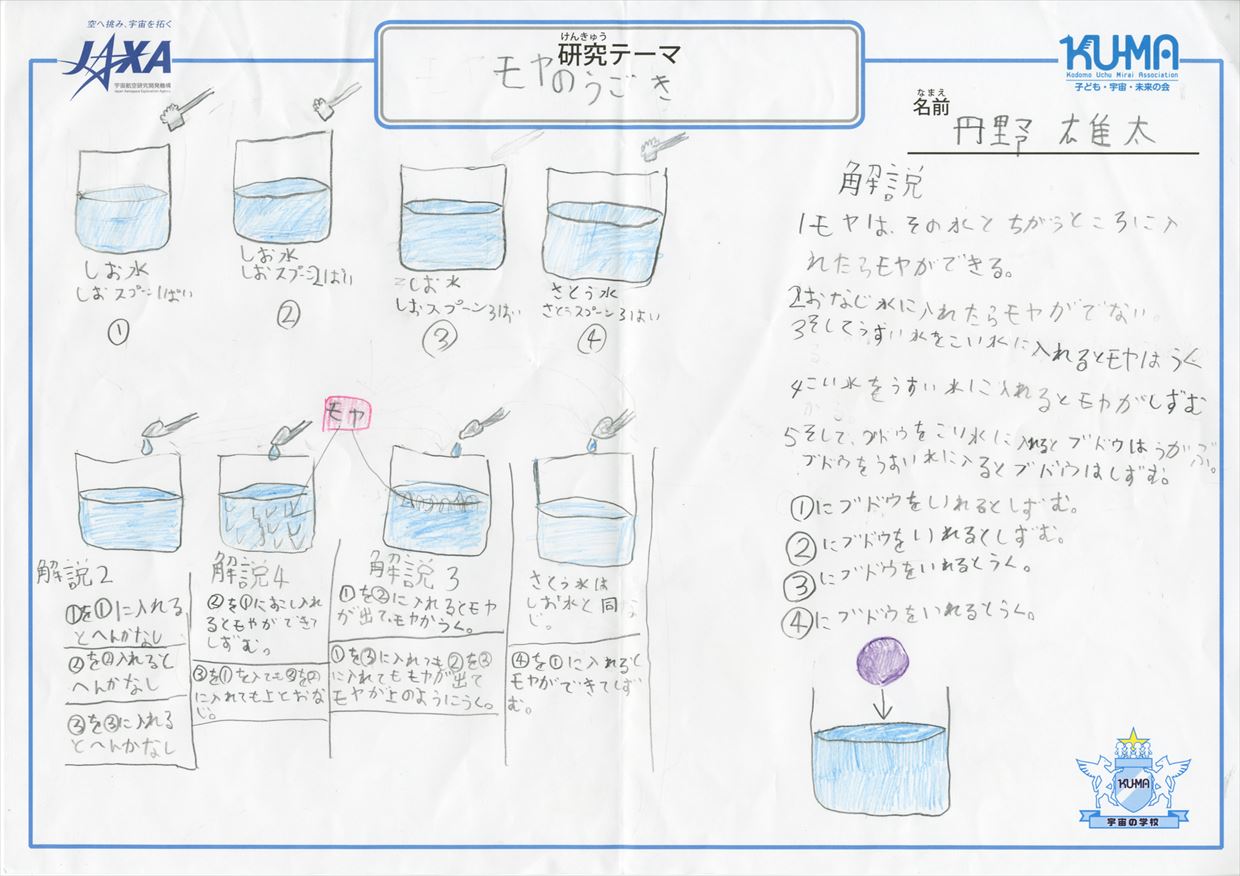 空へ挑み、宇宙を拓く
JAXA
宇宙航空研究開発機構
Japan Aerospace Exploration Agency
けんきゅう
研究テーマ
モヤのうごき
KU-MA
Kodomo Uchu Mirai Association
子ども・宇宙・未来の会
なまえ
名前
丹野 雄太
しお水
しおスプーン1ぱい
①
しお水
しおスプーン2はい
②
しお水
しおスプーン3ばい
③
さとう水
さとうスプーン3ばい
④
モヤ
解説2
①を①に入れる
とへんかなし
②を②入れると
へんかなし
③を③に入れる
とへんかなし
解説4
②を①におこし入れ
るともやができて
しずむ。
③を①を入ても③を②
に入れても上とおな
じ。
解説3
①を②に入れるとモヤ
が出て、モヤがうく。
①を③に入れっも②を③
に入れてももヤが出て
モヤが上のようにうく。
さとう水は
しお水と同
じ。
④を①に入れると
モヤができてしず
む。
解説
1モヤは、その水とちがうところに入
れたらモヤができる。
2おなじ水に入れたらモヤがでない。
3そしてうすい水をこい水に入れるとモヤはうく
4こい水をうすい水にご入れるとモヤがしずむ
5そして、ブドウをこり水に入れるとブドウはうかぶ。
ブドウをうすい水に入るとブドウはしずむ。
①にブドウをいれるとしずむ。
②にブドウをいれるとしずむ。
③にブドウをいれるとうく。
④にブドウをいれるとうく。
KU-MA
宇宙の学校